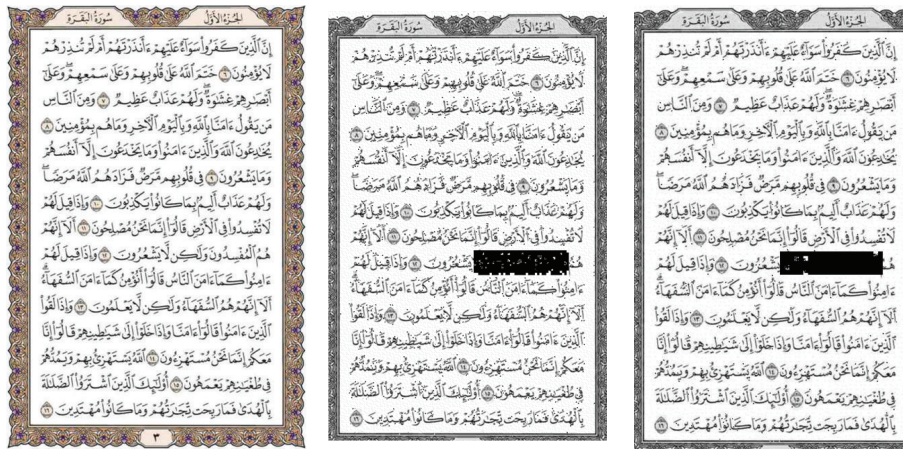 سُورَةُ البَقَرَةِ الجُزْءُ الأَوَّلُ
إِنَّ ٱلَّذِينَ كَفَرُوا۟ سَوَآءٌ عَلَيْهِمْ ءَأَنذَرْتَهُمْ أَمْ لَمْ تُنذِرْهُمْ
لَا يُؤْمِنُونَ ٦ خَتَمَ ٱللَّهُ عَلَىٰ قُلُوبِهِمْ وَعَلَىٰ سَمْعِهِمْ ۖ وَعَلَىٰٓ
أَبْصَٰرِهِمْ غِشَٰوَةٌ ۖ وَلَهُمْ عَذَابٌ عَظِيمٌ ٧ وَمِنَ ٱلنَّاسِ
مَن يَقُولُ ءَامَنَّا بِٱللَّهِ وَبِٱلْيَوْمِ ٱلْءَاخِرِ وَمَا هُم بِمُؤْمِنِينَ ٨
يُخَٰدِعُونَ ٱللَّهَ وَٱلَّذِينَ ءَامَنُوا۟ وَمَا يَخْدَعُونَ إِلَّآ أَنفُسَهُمْ
وَمَا يَشْعُرُونَ ٩ فِى قُلُوبِهِم مَّرَضٌ فَزَادَهُمُ ٱللَّهُ مَرَضًا ۖ
وَلَهُمْ عَذَابٌ أَلِيمٌۢ بِمَا كَانُوا۟ يَكْذِبُونَ ١٠ وَإِذَا قِيلَ لَهُمْ
لَا تُفْسِدُوا۟ فِى ٱلْأَرْضِ قَالُوٓا۟ إِنَّمَا نَحْنُ مُصْلِحُونَ ١١ أَلَآ إِنَّهُمْ
هُمُ ٱلْمُفْسِدُونَ وَلَٰكِن لَّا يَشْعُرُونَ ١٢ وَإِذَا قِيلَ لَهُمْ
ءَامِنُوا۟ كَمَآ ءَامَنَ ٱلنَّاسُ قَالُوٓا۟ أَنُؤْمِنُ كَمَآ ءَامَنَ ٱلسُّفَهَآءُ ۗ
أَلَآ إِنَّهُمْ هُمُ ٱلسُّفَهَآءُ وَلَٰكِن لَّا يَعْلَمُونَ ١٣ وَإِذَا لَقُوا۟
ٱلَّذِينَ ءَامَنُوا۟ قَالُوٓا۟ ءَامَنَّا وَإِذَا خَلَوْا۟ إِلَىٰ شَيَٰطِينِهِمْ قَالُوٓا۟ إِنَّا
مَعَكُمْ إِنَّمَا نَحْنُ مُسْتَهْزِءُونَ ١٤ ٱللَّهُ يَسْتَهْزِئُ بِهِمْ وَيَمُدُّهُمْ
فِى طُغْيَٰنِهِمْ يَعْمَهُونَ ١٥ أُو۟لَٰٓئِكَ ٱلَّذِينَ ٱشْتَرَوُا۟ ٱلضَّلَٰلَةَ
بِٱلْهُدَىٰ فَمَا رَبِحَت تِّجَٰرَتُهُمْ وَمَا كَانُوا۟ مُهْتَدِينَ ١٦
٣
سُورَةُ البَقَرَةِ الجُزْءُ الأَوَّلُ
إِنَّ ٱلَّذِينَ كَفَرُوا۟ سَوَآءٌ عَلَيْهِمْ ءَأَنذَرْتَهُمْ أَمْ لَمْ تُنذِرْهُمْ
لَا يُؤْمِنُونَ ٦ خَتَمَ ٱللَّهُ عَلَىٰ قُلُوبِهِمْ وَعَلَىٰ سَمْعِهِمْ ۖ وَعَلَىٰٓ
أَبْصَٰرِهِمْ غِشَٰوَةٌ ۖ وَلَهُمْ عَذَابٌ عَظِيمٌ ٧ وَمِنَ ٱلنَّاسِ
مَن يَقُولُ ءَامَنَّا بِٱللَّهِ وَبِٱلْيَوْمِ ٱلْءَاخِرِ وَمَا هُم بِمُؤْمِنِينَ ٨
يُخَٰدِعُونَ ٱللَّهَ وَٱلَّذِينَ ءَامَنُوا۟ وَمَا يَخْدَعُونَ إِلَّآ أَنفُسَهُمْ
وَمَا يَشْعُرُونَ ٩ فِى قُلُوبِهِم مَّرَضٌ فَزَادَهُمُ ٱللَّهُ مَرَضًا ۖ
وَلَهُمْ عَذَابٌ أَلِيمٌۢ بِمَا كَانُوا۟ يَكْذِبُونَ ١٠ وَإِذَا قِيلَ لَهُمْ
لَا تُفْسِدُوا۟ فِى ٱلْأَرْضِ قَالُوٓا۟ إِنَّمَا نَحْنُ مُصْلِحُونَ ١١ أَلَآ إِنَّهُمْ
هُمُ يَشْعُرُونَ ١٢ وَإِذَا قِيلَ لَهُمْ
ءَامِنُوا۟ كَمَآ ءَامَنَ ٱلنَّاسُ قَالُوٓا۟ أَنُؤْمِنُ كَمَآ ءَامَنَ ٱلسُّفَهَآءُ ۗ
أَلَآ إِنَّهُمْ هُمُ ٱلسُّفَهَآءُ وَلَٰكِن لَّا يَعْلَمُونَ ١٣ وَإِذَا لَقُوا۟
ٱلَّذِينَ ءَامَنُوا۟ قَالُوٓا۟ ءَامَنَّا وَإِذَا خَلَوْا۟ إِلَىٰ شَيَٰطِينِهِمْ قَالُوٓا۟ إِنَّا
مَعَكُمْ إِنَّمَا نَحْنُ مُسْتَهْزِءُونَ ١٤ ٱللَّهُ يَسْتَهْزِئُ بِهِمْ وَيَمُدُّهُمْ
فِى طُغْيَٰنِهِمْ يَعْمَهُونَ ١٥ أُو۟لَٰٓئِكَ ٱلَّذِينَ ٱشْتَرَوُا۟ ٱلضَّلَٰلَةَ
بِٱلْهُدَىٰ فَمَا رَبِحَت تِّجَٰرَتُهُمْ وَمَا كَانُوا۟ مُهْتَدِينَ ١٦
سُورَةُ البَقَرَةِ الجُزْءُ الأَوَّلُ
إِنَّ ٱلَّذِينَ كَفَرُوا۟ سَوَآءٌ عَلَيْهِمْ ءَأَنذَرْتَهُمْ أَمْ لَمْ تُنذِرْهُمْ
لَا يُؤْمِنُونَ ٦ خَتَمَ ٱللَّهُ عَلَىٰ قُلُوبِهِمْ وَعَلَىٰ سَمْعِهِمْ ۖ وَعَلَىٰٓ
أَبْصَٰرِهِمْ غِشَٰوَةٌ ۖ وَلَهُمْ عَذَابٌ عَظِيمٌ ٧ وَمِنَ ٱلنَّاسِ
مَن يَقُولُ ءَامَنَّا بِٱللَّهِ وَبِٱلْيَوْمِ ٱلْءَاخِرِ وَمَا هُم بِمُؤْمِنِينَ ٨
يُخَٰدِعُونَ ٱللَّهَ وَٱلَّذِينَ ءَامَنُوا۟ وَمَا يَخْدَعُونَ إِلَّآ أَنفُسَهُمْ
وَمَا يَشْعُرُونَ ٩ فِى قُلُوبِهِم مَّرَضٌ فَزَادَهُمُ ٱللَّهُ مَرَضًا ۖ
وَلَهُمْ عَذَابٌ أَلِيمٌۢ بِمَا كَانُوا۟ يَكْذِبُونَ ١٠ وَإِذَا قِيلَ لَهُمْ
لَا تُفْسِدُوا۟ فِى ٱلْأَرْضِ قَالُوٓا۟ إِنَّمَا نَحْنُ مُصْلِحُونَ ١١ أَلَآ إِنَّهُمْ
هُمُ يَشْعُرُونَ ١٢ وَإِذَا قِيلَ لَهُمْ
ءَامِنُوا۟ كَمَآ ءَامَنَ ٱلنَّاسُ قَالُوٓا۟ أَنُؤْمِنُ كَمَآ ءَامَنَ ٱلسُّفَهَآءُ ۗ
أَلَآ إِنَّهُمْ هُمُ ٱلسُّفَهَآءُ وَلَٰكِن لَّا يَعْلَمُونَ ١٣ وَإِذَا لَقُوا۟
ٱلَّذِينَ ءَامَنُوا۟ قَالُوٓا۟ ءَامَنَّا وَإِذَا خَلَوْا۟ إِلَىٰ شَيَٰطِينِهِمْ قَالُوٓا۟ إِنَّا
مَعَكُمْ إِنَّمَا نَحْنُ مُسْتَهْزِءُونَ ١٤ ٱللَّهُ يَسْتَهْزِئُ بِهِمْ وَيَمُدُّهُمْ
فِى طُغْيَٰنِهِمْ يَعْمَهُونَ ١٥ أُو۟لَٰٓئِكَ ٱلَّذِينَ ٱشْتَرَوُا۟ ٱلضَّلَٰلَةَ
بِٱلْهُدَىٰ فَمَا رَبِحَت تِّجَٰرَتُهُمْ وَمَا كَانُوا۟ مُهْتَدِينَ ١٦